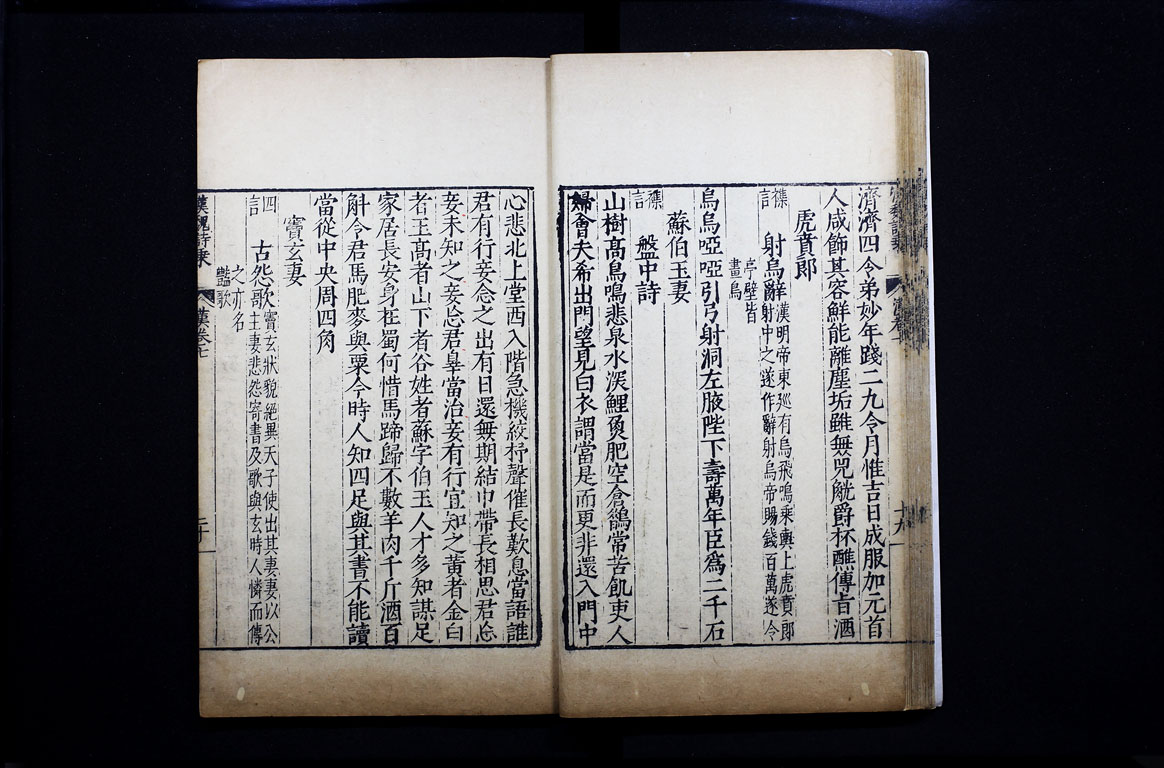 濟濟四令弟妙年踐二九令月惟吉日成服加元首
人咸飾其容鮮能離塵垢雖無兕觥爵杯醮傳旨酒
虎賁郎
襍言
射烏辭
漢明帝東廵有烏飛鳴乘輿上虎賁郎
射中之遂作辭射烏帝賜錢百萬遂令
亭壁皆
畫烏
烏烏啞啞引弓射洞左腋陛下壽萬年臣爲二千石
蘇伯玉妻
襍言
盤中詩
山樹高鳥鳴悲泉水深鯉魚肥空倉鵲常苦飢吏人
婦會夫希出門望見白衣謂當是而更非還入門中
心悲北上堂西入階急機絞杼聲催長歎息當語誰
君有行妾念之出有日還無期結巾帶長相思君忘
妾未知之妾忘君辠當治妾有行宜知之黃者金白
者玉高者山下者谷姓者蘇字伯玉人才多知謀足
家居長安身在蜀何惜馬蹄歸不數羊肉千斤酒百
斛令君馬肥麥與粟今時人知四足與其書不能讀
當從中央周四角
竇玄妻
四言
古怨歌
竇玄狀貌絕異天子使出其妻妻以公
主妻悲怨寄書及歌與玄時人憐而傳
之亦名
豔歌
漢魏詩乗
漢卷七
二十